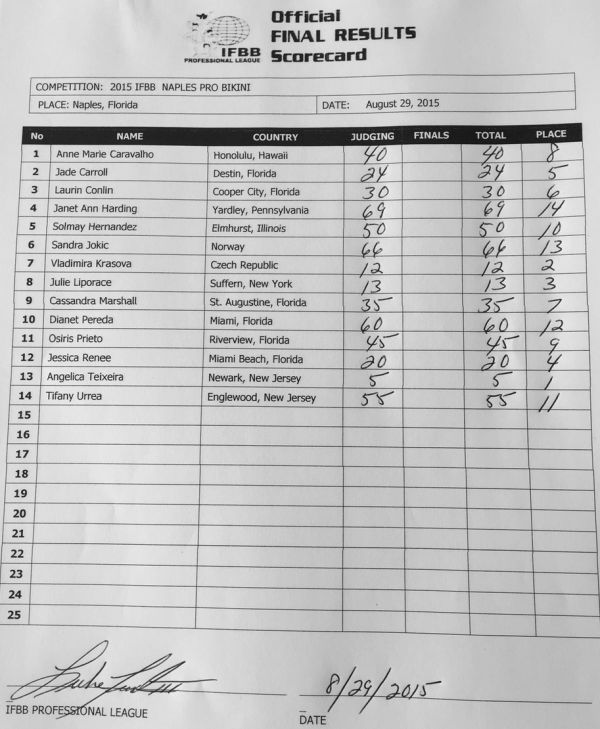 Official
FINAL RESULTS
Scorecard
IFBB
PROFESSIONAL LEAGUE
COMPETITION: 2015 IFBB NAPLES PRO BIKINI
PLACE: Naples, Florida DATE: August 29, 2015
No NAME COUNTRY JUDGING FINALS TOTAL PLACE
1 Anne Marie Caravalho Honolulu, Hawaii 40 40 8
2 Jade Carroll Destin, Florida 24 24 5
3 Laurin Conlin Cooper City, Florida 30 30 6
4 Janet Ann Harding Yardley, Pennsylvania 69 69 14
5 Solmay Hernandez Elmhurst, Illinois 50 50 10
6 Sandra Jokic Norway 66 66 13
7 Vladimira Krasova Czech Republic 12 12 2
8 Julie Liporace Suffern, New York 13 13 3
9 Cassandra Marshall St. Augustine, Florida 35 35 7
10 Dianet Pereda Miami, Florida 60 60 12
11 Osiris Prieto Riverview, Florida 45 45 9
12 Jessica Renee Miami Beach, Florida 20 20 4
13 Angelica Teixeira Newark, New Jersey 5 5 1
14 Tifany Urrea Englewood, New Jersey 55 55 11
15
16
17
18
19
20
21
22
23
24
25
8/29/2015
IFBB PROFESSIONAL LEAGUE DATE